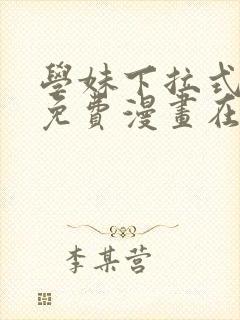 學妹下拉式
免費漫畫在
李某营